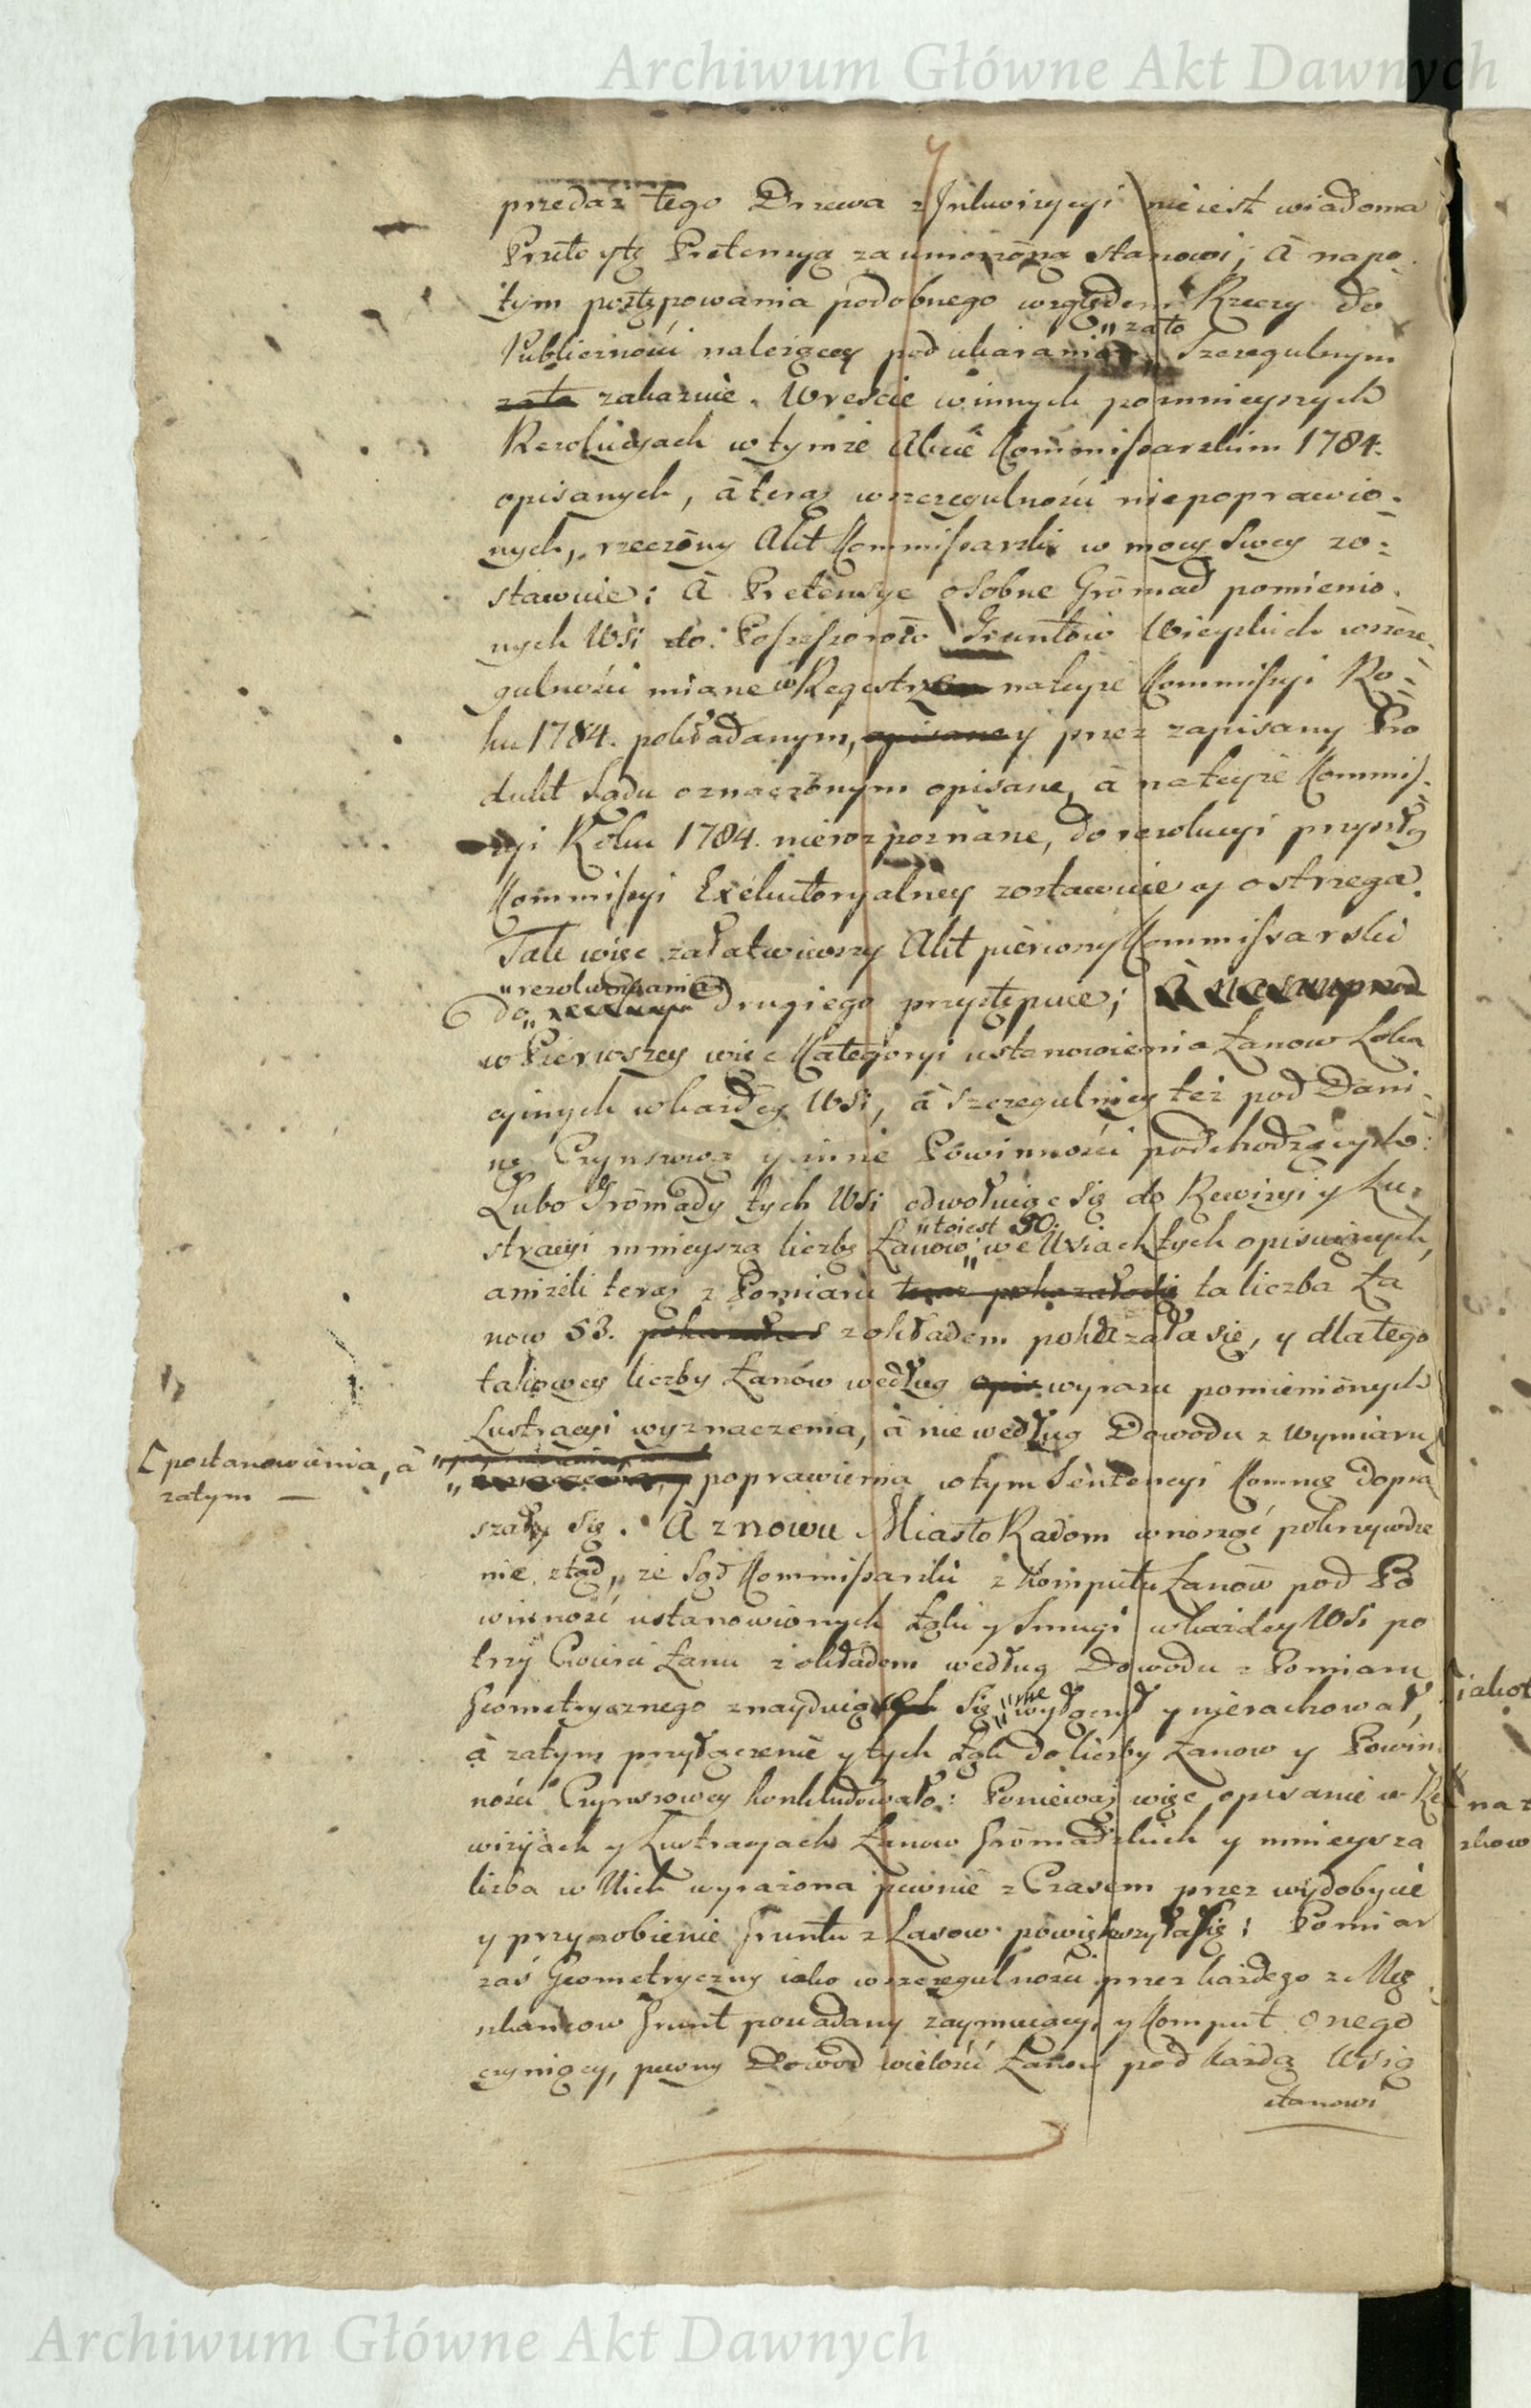 Archiwum Główne Akt Dawnych
przedaż tego Drzewa z Inkwizycyi nieiest wiadoma
Przeto ytę Pretensyą za umorzoną stanowi, à napo-
tym postępowania podobnego względem Rzeczy do
"zato
Publicznosci należącey pod ukaraniem Szczegulnym
zato zakazuie. Wreście winnych pomnieyszych
Rezolucyach w tymże Akcie Kommissarskim 1784.
opisanych, à teraz wszczegulnosci niepoprawio-
nych, rzeczony Akt Kommissarski w mocy Swey zo-
stawuie: à Pretensye osobne Gromad pomienio-
nych Wsi do Possessorow Gruntow Wieyskich wszcze-
gulnosci miane w Regestrze na teyże Kommissyi Ro-
ku 1784. pokładanym, opisaney przez zapisany Pro
dukt Sądu oznaczonym opisane, à na teyże Kommis-
syi Roku 1784. nierozpoznane, do rezolucyi przyszłey
Kommissyi Exekutoryalney zostawuie y ostrzega.
Tak więc załatwiwszy Akt pierwszy Kommissarski
"rezolwowania
do drugiego przystępuie; à nasamprzod
w Pierwszey więc Kategoryi ustanowienia Łanow Loka
cyinych w każdey Wsi, à szczegulniey też pod Dani-
nę Czynszową y inne Powinności podchodzących:
Lubo Gromady tych Wsi odwołuiąc się do Rewizyi y Lu-
"toiest 50.
stracyi mnieyszą liczbę Łanow we Wsiach tych opisuiących,
aniżeli teraz z Pomiaru teraz pokazało się ta liczba Ła
now 53. pokazała s z okładem pokazała się, y dlatego
takowey liczby Łanów według opis wyrazu pomienionych
Lustracyi wyznaczenia, à nie według Dowodu z Wymiaru
[postanowienia, à
zatym —
poprawienia w tym Sentencyi Kommę dopra
szały się. à znowu Miasto Radom wnosząć pokrzywdze
nie ztąd, że Sąd Kommissarski z Komputu Łanow pod Po
winność ustanowionych Łąki y Smugi w każdey Wsi po
trzy Cwierci Łanu z okładem według Dowodu z Pomiaru
Geometrycznego znayduiących się "nie wyłączył y nierachował,
à zatym przyłączenie y tych Łąk do liczby Łanow y Powin
ności Czynszowey konkludowało: Ponieważ więc opisanie w Re
wizyiach y Lustracyach Łanow Gromadzkich y mnieysza
liczba w Nich wyrażona pewnie z Czasem przez wydobycie
y przyrobienie Gruntu z Lasow powiększyła się; Pomiar
zaś Geometryczny iako wszczegulnosci przez każdego z Mię
szkancow Grunt posiadany zaymuiący, y Komput onego
czyniący, pewny Dowod wielości Łanow pod każdą Wsią
stanowi
Archiwum Główne Akt Dawnych